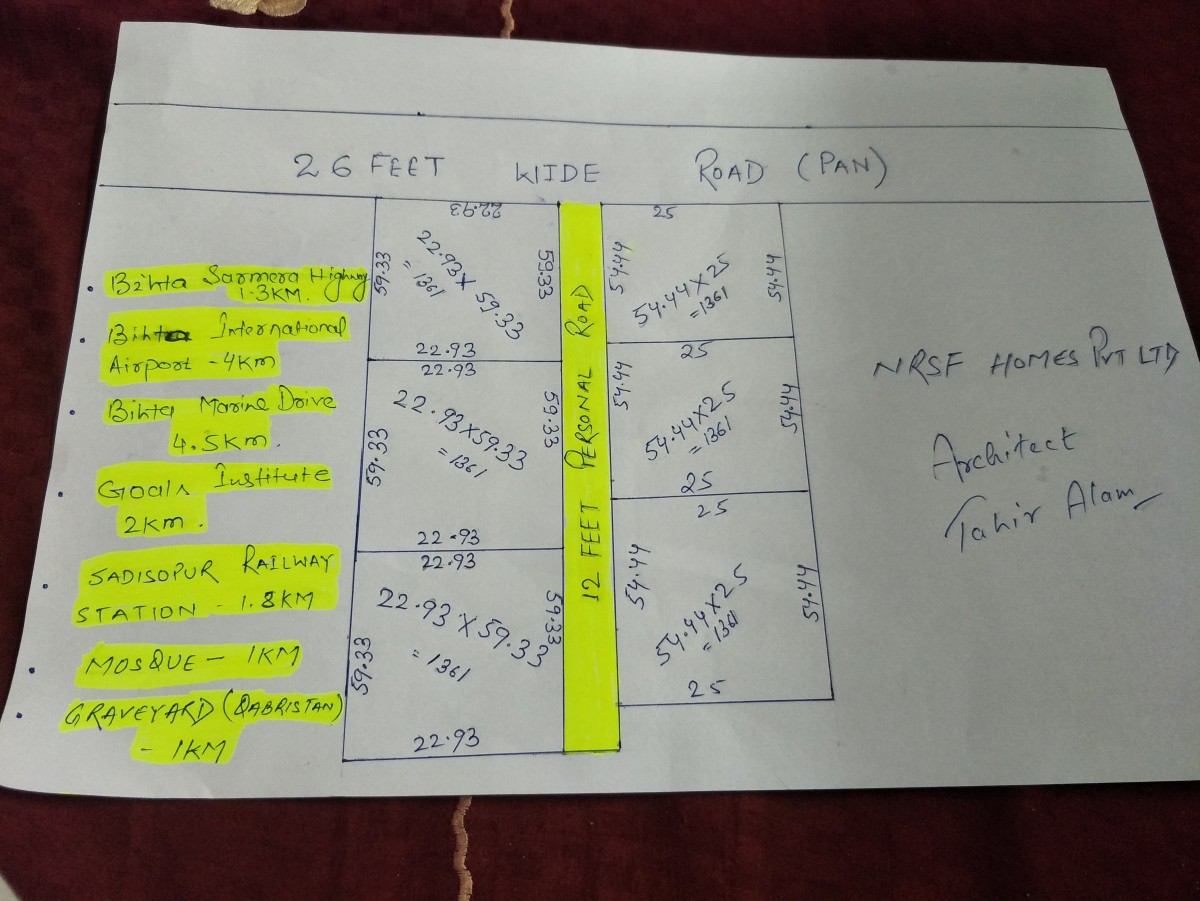 26 FEET WIDE ROAD (PAN)
• Bihta Sarmera Highway
1.3KM.
• Bihta International
Airport - 4Km
• Bihta Marine Drive
4.5Km.
• Goals Institute
2Km.
• SADISOPUR RAILWAY
STATION - 1.8KM
• MOSQUE - 1KM
• GRAVEYARD (QABRISTAN)
- 1KM
22.93
59.33
22.93 X 59.33
= 1361
59.33
22.93
22.93
59.33
22.93X59.33
= 1361
59.33
22.93
22.93
59.33
22.93 X 59.33
= 1361
59.33
22.93
12 FEET PERSONAL ROAD
25
54.44
54.44X25
=1361
54.44
25
54.44
54.44X25
=1361
54.44
25
25
54.44
54.44X25
=1361
54.44
25
NRSF HOMES PVT LTD
Architect
Tahir Alam